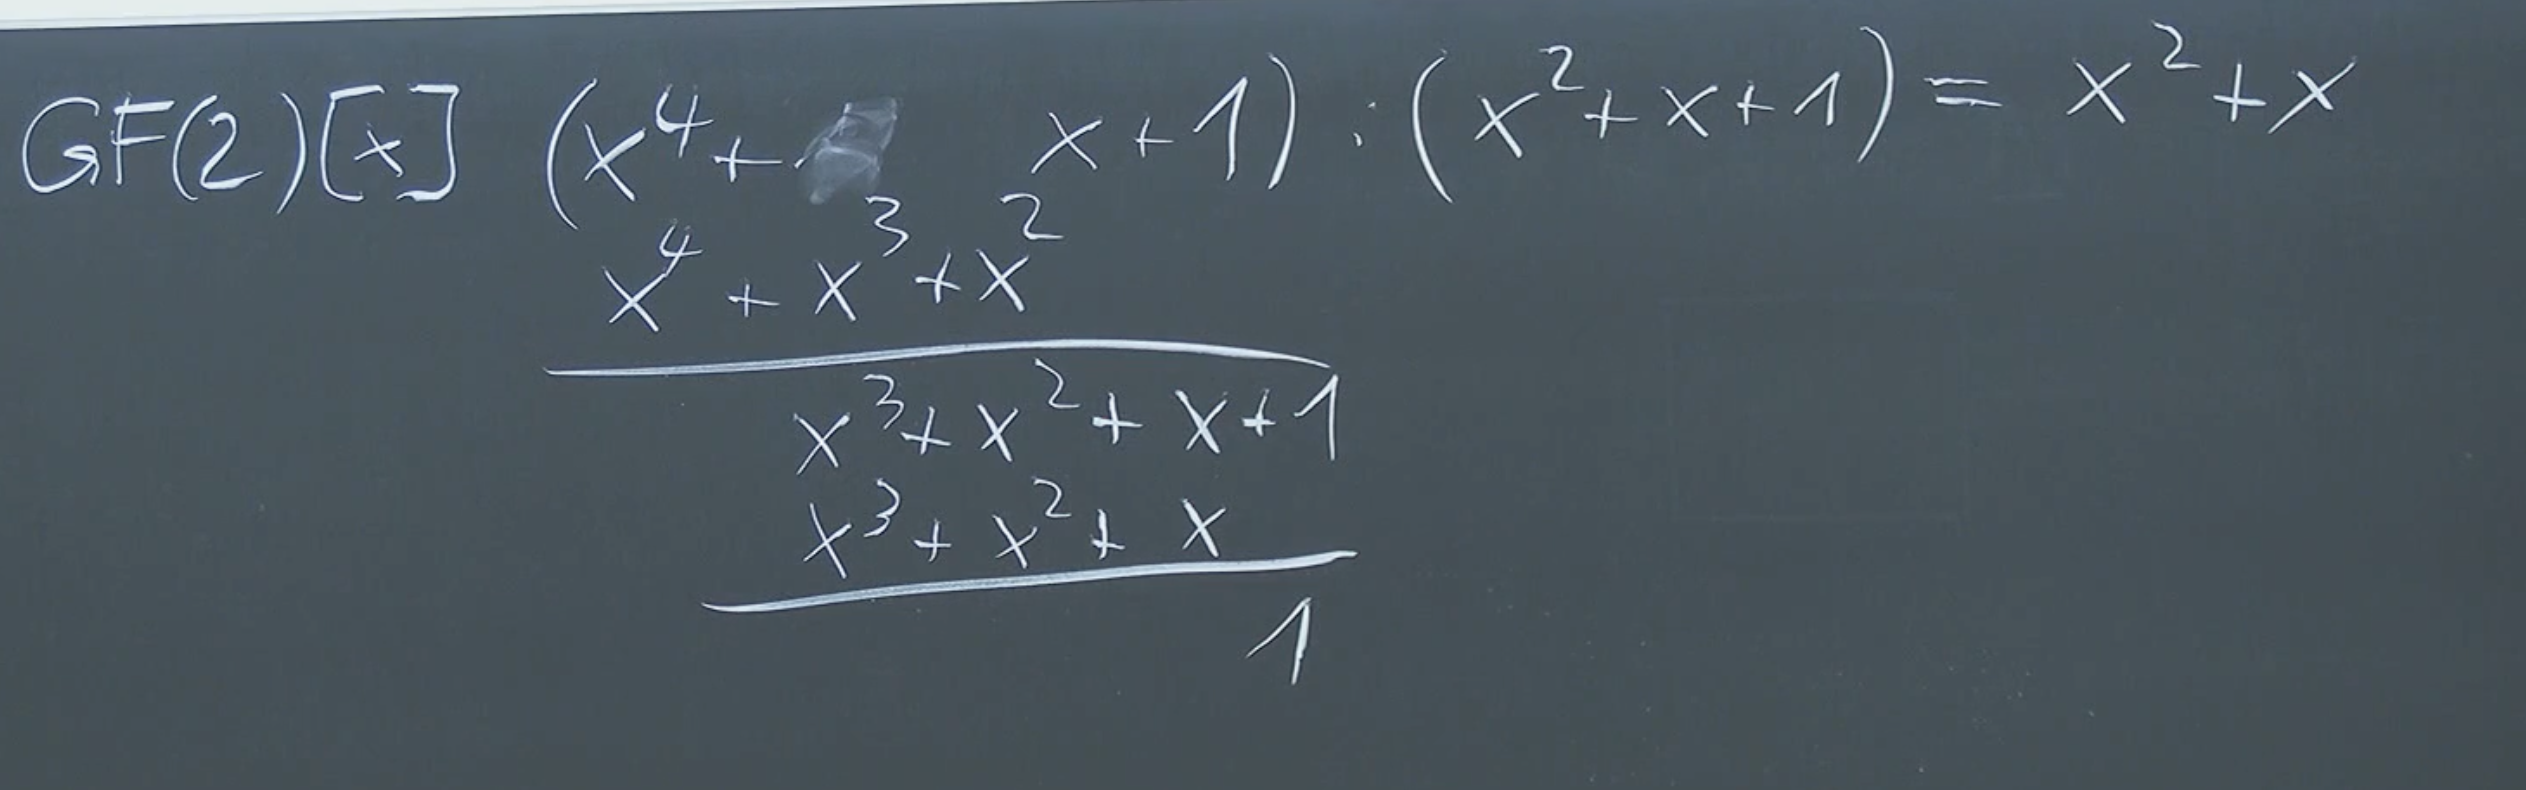 GF(2)[x] (x⁴ + x + 1) : (x² + x + 1) = x² + x
x⁴ + x³ + x²
x³ + x² + x + 1
x³ + x² + x
1